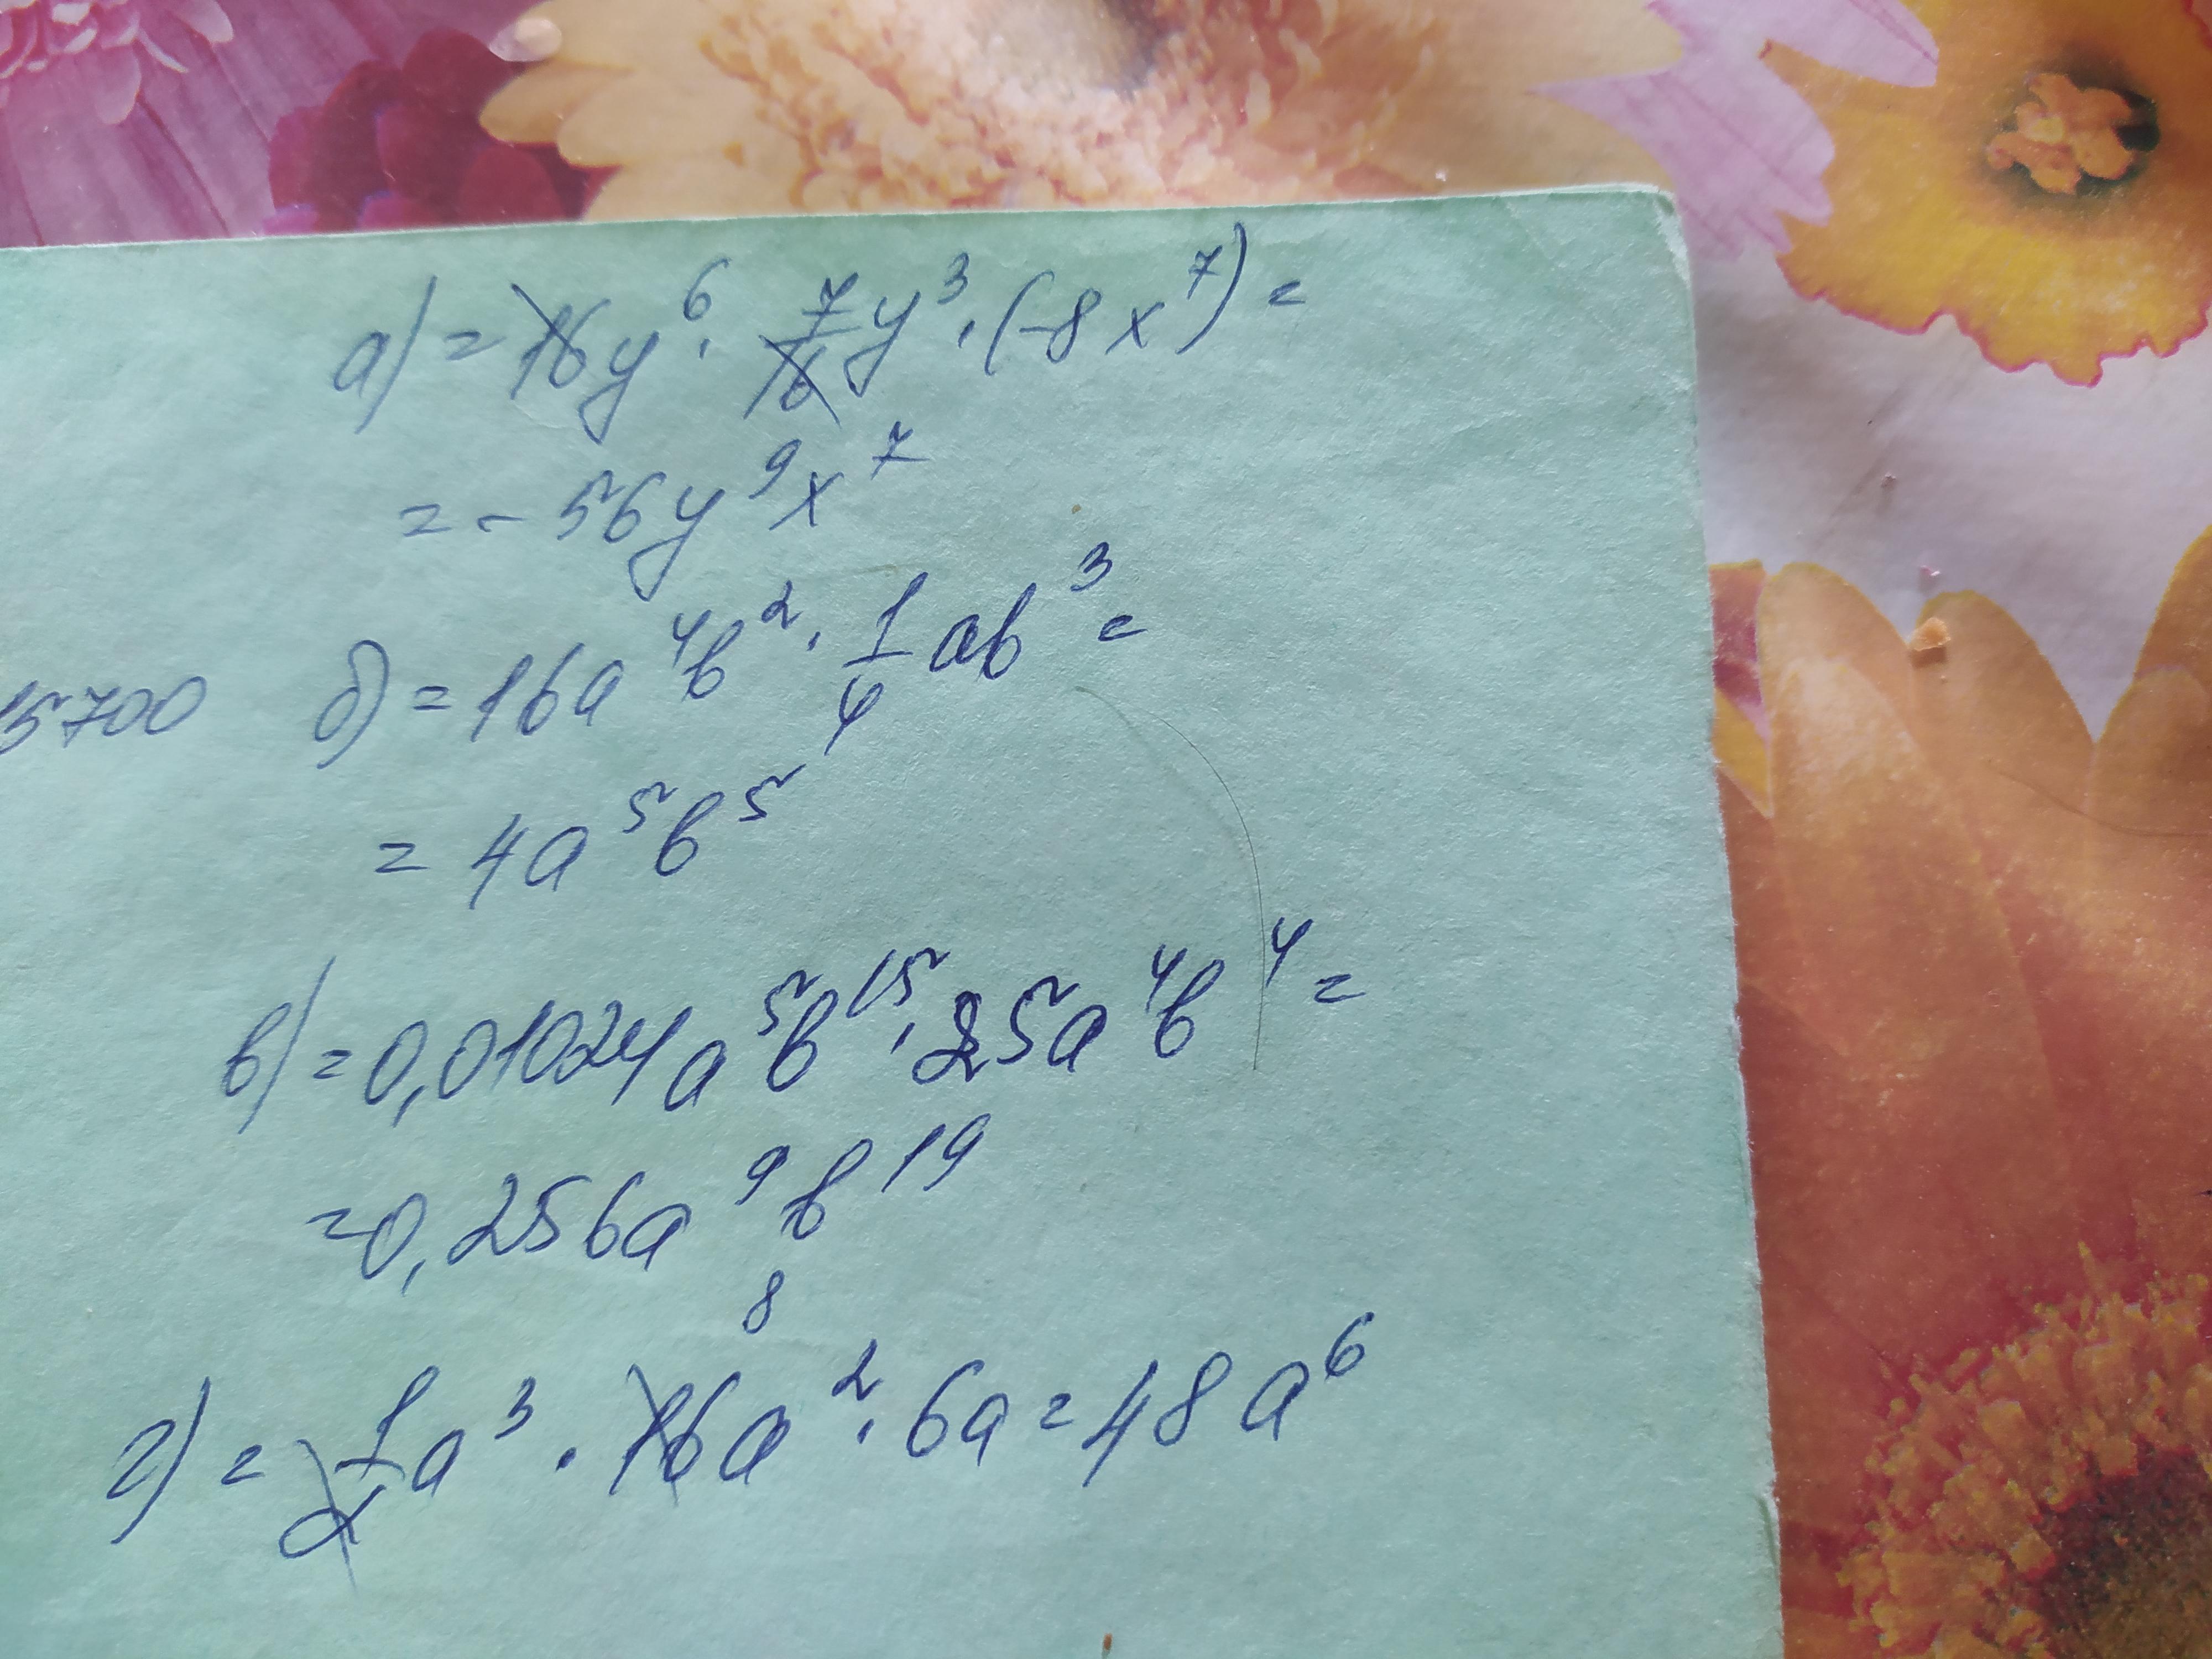 а) = 16y⁶ · 7/16 y³ · (-8x⁷) =
= - 56y⁹x⁷
15700
б) = 16a⁴b² · 1/4 ab³ =
= 4a⁵b⁵
в) = 0,01024a⁵b¹⁵ · 25a⁴b⁴ =
= 0,256a⁹b¹⁹
8
г) = 1/2 a³ · 16a² · 6a = 48a⁶